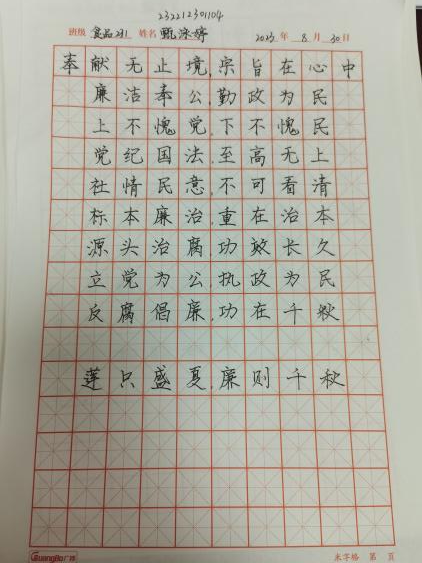 232212301104
班级 食品231 姓名 甄泳婷 2023年 8月 30日
奉献无止境,宗旨在心中
廉洁奉公,勤政为民
上不愧党,下不愧民
党纪国法,至高无上
社情民意,不可看清
标本廉治,重在治本
源头治腐,功效长久
立党为公,执政为民
反腐倡廉,功在千秋
莲只盛夏,廉则千秋
GuangBo广博 米字格 第 页